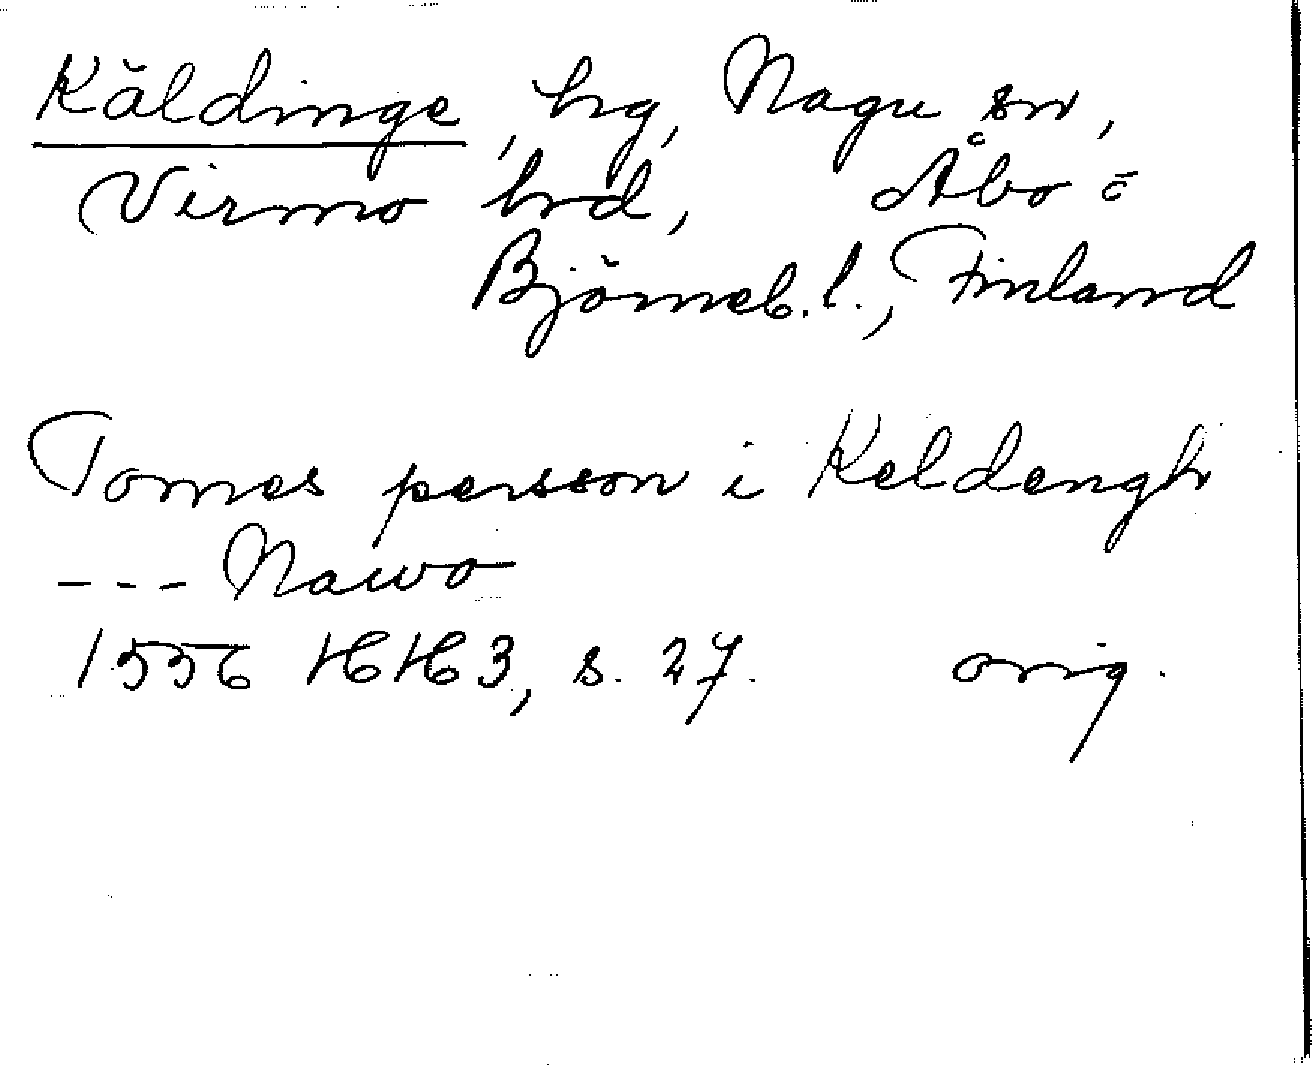 Käldinge, hg, Nagu sn,
Virmo hrd, Åbo o
Björneb. l., Finland
Tomes persson i Keldengh
--- Nawo
1556 HH 3, s. 27. orig.